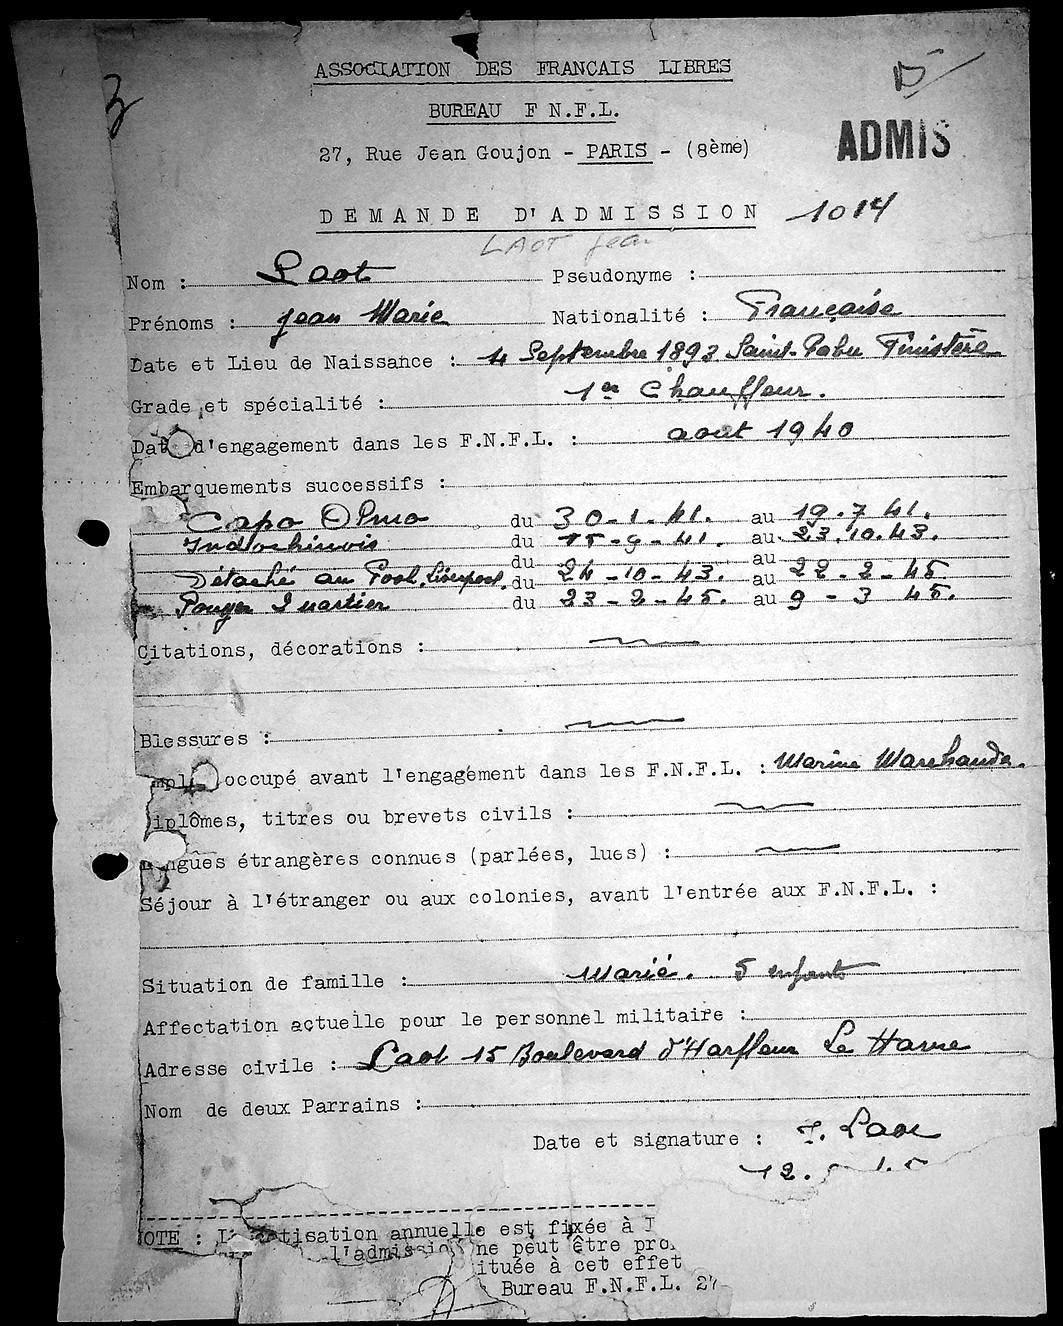 ASSOCIATION DES FRANCAIS LIBRES
BUREAU F N.F.L.
27, Rue Jean Goujon - PARIS - (8ème)
ADMIS
DEMANDE D'ADMISSION 1014
LAOT Jean
Nom : Laot Pseudonyme :
Prénoms : Jean Marie Nationalité : Française
Date et Lieu de Naissance : 4 Septembre 1893 Saint-Pabu Finistère
Grade et spécialité : 1er Chauffeur.
Date d'engagement dans les F.N.F.L. : aout 1940
Embarquements successifs :
Capo Olmo du 30-1-41. au 19.7 41.
Indochinois du 15-9-41. au 23.10.43.
du au
Détaché au Pool Liverpool. du 24-10-43. au 22-2-45
Fouger Quartier du 23-2-45. au 9-3 45.
Citations, décorations :
Blessures :
occupé avant l'engagement dans les F.N.F.L. : Marine Marchande.
iplômes, titres ou brevets civils :
ngues étrangères connues (parlées, lues) :
Séjour à l'étranger ou aux colonies, avant l'entrée aux F.N.F.L. :
Situation de famille : Marié. 5 enfants
Affectation actuelle pour le personnel militaire :
Adresse civile : Laot 15 Boulevard d'Harfleur Le Havre
Nom de deux Parrains :
Date et signature : J. Laot
12.
OTE : tisation annuelle est fixée à
l'admission ne peut être pro
ituée à cet effet
Bureau F.N.F.L. 27